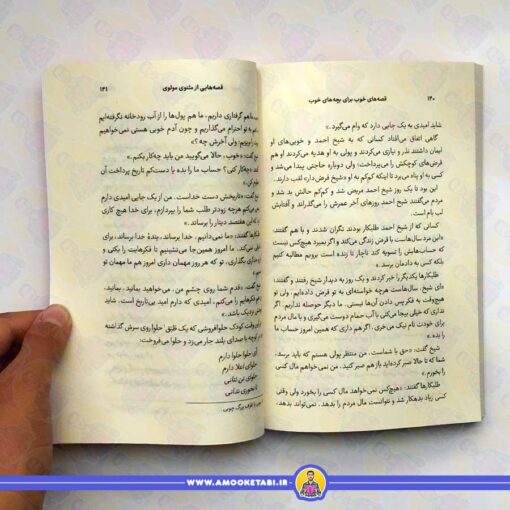 ۱۴۰ قصه‌های خوب برای بچه‌های خوب
شاید امیدی به یک جایی دارد که وام می‌گیرد.»
گاهی اتفاق می‌افتاد کسانی که به شیخ احمد و خوبی‌های او
ایمان داشتند نذر و نیازی می‌کردند و پولی به او هدیه می‌کردند او هم
قرض‌های کوچکش را می‌پرداخت؛ ولی دوباره حاجتی پیدا می‌شد و
کسی به او پناه می‌برد تا اینکه کم‌کم به او «شیخ قرض‌دار» لقب دادند.
این بود تا یک روز شیخ احمد مریض شد و کم‌کم حالش بد شد و
مردم می‌گفتند شیخ احمد روزهای آخر عمرش را می‌گذراند و آفتابش
لب بام است.
کسانی که از شیخ احمد طلبکار بودند نگران شدند و با هم گفتند:
«این مرد سال‌هاست با قرض زندگی می‌کند و اگر بمیرد هیچ‌کس نیست
که حساب‌هایش را تسویه کند تاچار تا زنده است برویم مطالبه کنیم
بلکه کسی به دادمان برسد.»
طلبکارها یکدیگر را خبر کردند و یک روز به دیدار شیخ رفتند و گفتند:
«ای شیخ، سال‌هاست هرچه خواسته‌ای به تو قرض داده‌ایم، ولی تو
هیچ‌وقت به فکر پس دادن آن‌ها نیستی، ما دیگر حوصله نداریم. اگر
برای خودت نام نیک می‌خری. اگر هم داری که همین امروز حساب ما
را بده.»
شیخ گفت: «حق با شماست. من منتظر پولی هستم که باید برسد،
شما که تا حالا صبر کرده‌اید باز هم صبر کنید. من نمی‌خواهم مال کسی
را بخورم.»
طلبکارها گفتند: «هیچ‌کس نمی‌خواهد مال کسی را بخورد ولی وقتی
کسی زیاد بدهکار شد و نتوانست مال مردم را بدهد، نمی‌تواند بدهد.
قصه‌هایی از مثنوی مولوی ۱۴۱
هم گرفتاری داریم، ما هم پول‌ها را از آب رودخانه نگرفته‌ایم
تو احترام می‌گذاریم و چون آدم خوبی هستی نمی‌خواهیم
ولی آخرش چه ؟»
گفت: «خوب، حالا می‌گویید من باید چه‌کار بکنم.»
«چه‌کار کنی؟ حساب ما را بده یا دست‌کم تاریخ پرداخت آن
گفت: «تاریخش دست خداست. من از یک جایی امیدی دارم
هرچه زودتر طلب شما را بپردازم، برای خدا هیچ کاری
این هفتصد دینار را برساند.»
گفتند: «ما نمی‌دانیم، خدا برساند، بنده خدا برساند، برای
می‌کند. ما امروز همین‌جا می‌نشینیم تا فکرهایت را بکنی و
بگذاری، تو که هر روز مهمان داری امروز هم ما مهمان تو
گفت: «قدم شما روی چشم من. می‌خواهید بمانید، بمانید.
هم فکرهایم را می‌کنم، امیدی که دارم امید بی‌تاریخ است. شاید
نزدیک باشد.»
وقت کودک حلوافروشی که یک طبق حلواروی سرش گذاشته
با صدای بلند جار می‌زد و حلوا می‌فروخت:
آی حلوا حلوا دارم
حلوای اعلا دارم
WWW.AMOOKETABI.IR